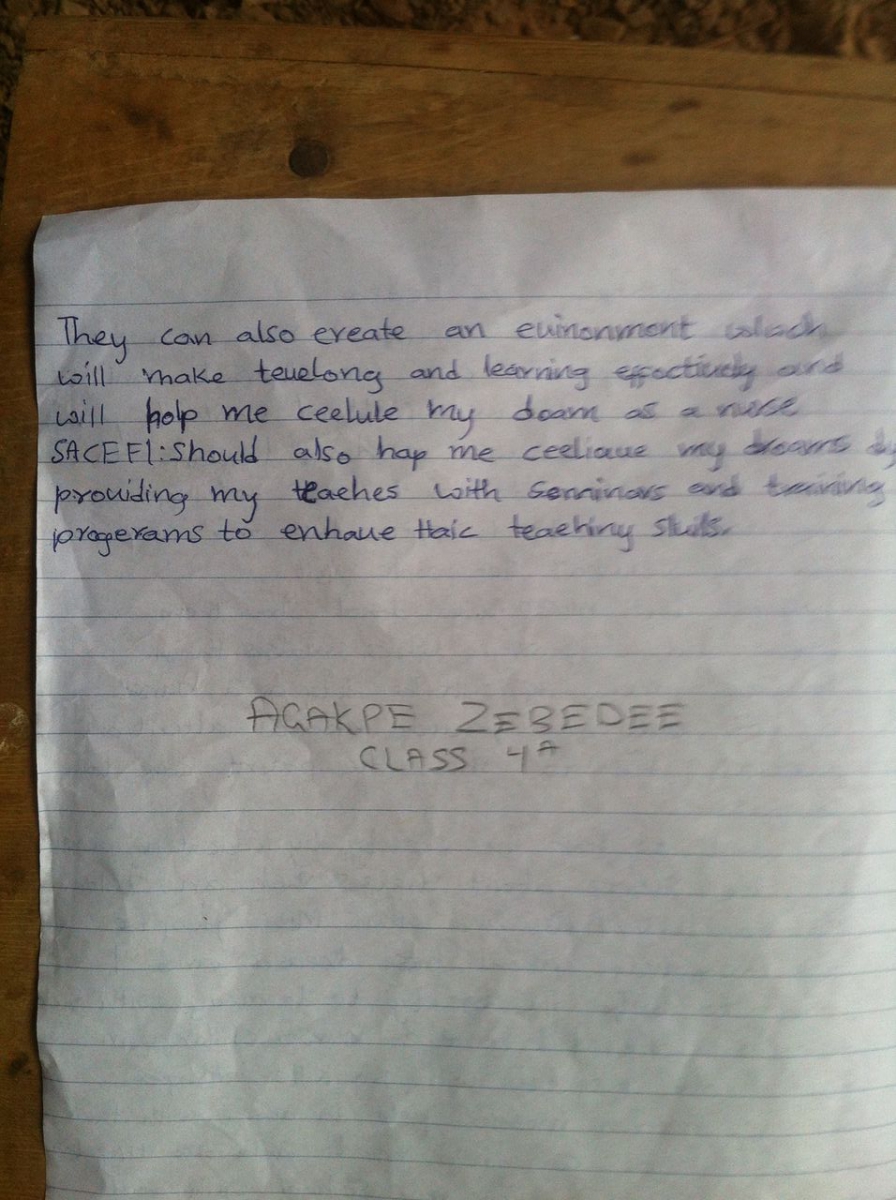 They can also ereate an euinonment which
will make teuelong and learning effectively and
will holp me ceelule my doam as a nuse
SACEFI: Should also hap me ceeliaue my dreams by
prouiding my teaehes with Seminars and training
progerams to enhaue Haic teaehing skills.
AGAKPE ZEBEDEE
CLASS 4A